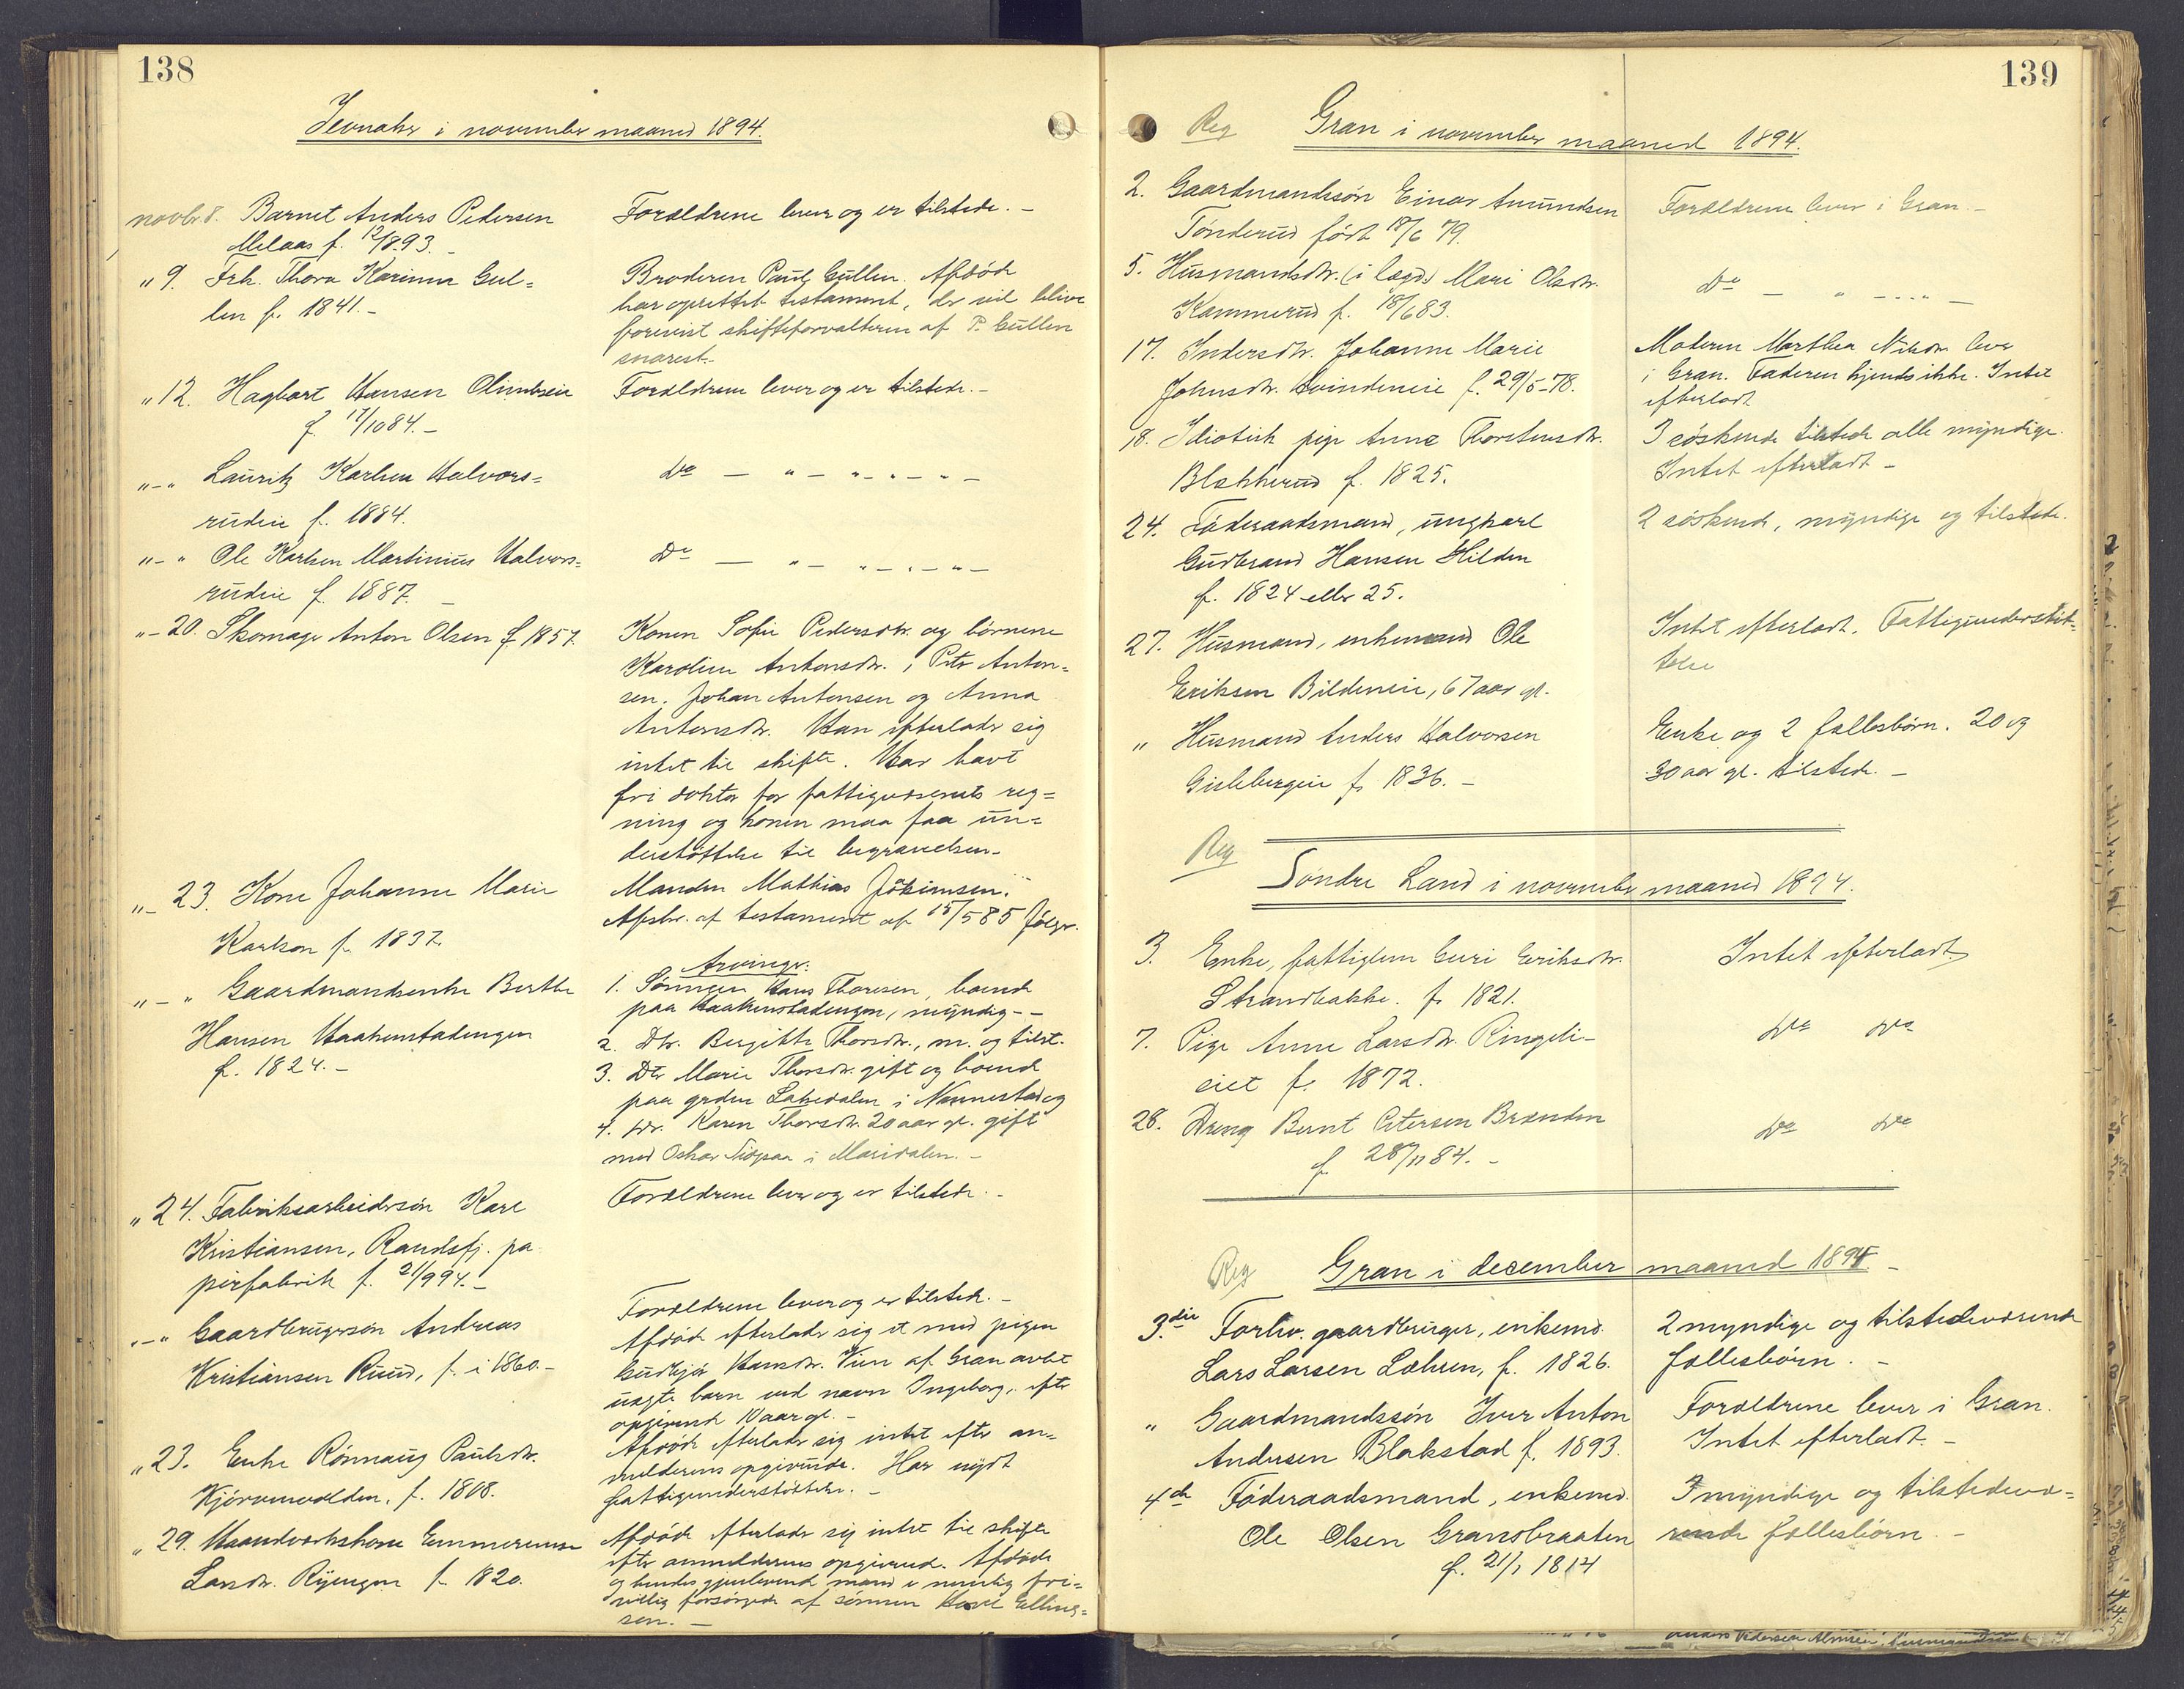 138
Jevnaker i november maaned 1894.
novbr. 8. Barnet Anders Pedersen
Melaas f. 12/8 93.
Forældrene lever og er tilstede. -
" 9. Frk. Thora Karinna Gul=
len f. 1841. -
Broderen Paul Gullen. Afdøde
har oprettet testament, der vil blive
forevist skifteforvalteren af P. Gullen
snarest.
" 12. Hagbart Hansen Olimbseie
f. 17/10 84. -
Forældrene lever og er tilstede. -
" - " Lauritz Karlsen Halvors=
rudeie f. 1884.
do - " - " - " - " -
" - " Ole Karlsen Martinius Halvors=
rudeie f. 1887. -
do - " - " - " - " -
" - 20. Skomager Anton Olsen f. 1857.
Konen Sofie Pedersdtr. og børnene
Karoline Antonsdtr., Peter Anton=
sen, Johan Antonsen og Anna
Antonsdtr. Han efterlader sig
intet til skifte. Har havt
fri doktor for fattigvæsenets reg=
ning og konen maa faa un=
derstøttelse til begravelsen.
" - 23. Kone Johanne Marie
Karlson f. 1837.
Manden Mathias Jokimsen.
Afskr. af testament af 15/5 85 følger.
" - " Gaardmandsenke Berthe
Hansen Haakenstadengen
f. 1824. -
Arvinger:
1. Sønnen Hans Thoresen, boende
paa Haakenstadengen, myndig - -
2. Dtr. Birgitte Thorsdtr., m. og tilst.
3. Dtr Marie Thorsdtr. gift og boende
paa grden Løkedalen i Nannestad og
4. Dtr. Karen Thorsdtr. 20 aar gl. gift
med Oskar i Maridalen. -
" 24. Fabriksarbeidersøn Karl
Kristiansen, Randsfj. pa
pirfabrik f. 21/9 94. -
Forældrene lever og er tilstede. -
" - " Gaardbrugersøn Andreas
Kristiansen Ruud, f. i 1860. -
Forældrene lever og er tilstede. -
Afdøde efterlader sig et med pigen
Gudbjør Hansdtr. Vien af Gran avlet
uægte barn ved navn Ingeborg, efter
opgivende 10 aar gl. -
" 23. Enke Rønnaug Paulsdtr.
Kjørvenvolden, f. 1808.
Afdøde efterlader sig intet efter an=
melderens opgivende. Har nydt
fattigunderstøttelse. -
" 29. Haandverkskone Emmerense
Larsdtr. Ryengen f. 1820.
Afdøde efterlader sig intet til skifte
efter anmelderens opgivend. Afdøde
og hendes gjenlevende mand er nemlig fri=
villig forsørgede af sønnen Elling=
sen. -
139
Reg Gran i november maaned 1894.
2. Gaardmandssøn Einar Amundsen
Tønderud født 18/6 79.
Forældrene lever i Gran. -
5. Husmandsdtr. (i lægd) Mari Olsdtr.
Kammerud f. 18/6 83.
do - " - " - " -
17. Indersdtr. Johanne Marie
Johnsdtr. Hvindeneie f. 29/5 - 78.
Moderen Marthea Nilsdtr. lever
i Gran. Faderen kjendes ikke. Intet
efterladt
18. Idiotisk pige Anne Thorstensdtr.
Blekkerud f. 1825.
3 søskende tilstede alle myndige.
Intet efterladt -
24. Føderaadsmand, ungkarl
Gudbrand Hansen Hilden
f. 1824 eller 25.
2 søskende, myndige og tilstede.
27. Husmand, enkemand Ole
Eriksen Bildeneie, 67 aar gl.
Intet efterladt. Fattigunderstøt=
telse
" Husmand Anders Halvorsen
Gislebergeie f. 1836. -
Enke og 2 fællesbørn. 20 og
30 aar gl. tilstede. -
Reg Søndre Land i november maaned 1894.
3. Enke, fattiglem Guri Eriksdtr.
Strandbakke. f. 1821.
Intet efterladt
7. Pige Anne Larsdtr. Ringeli-
eiet f. 1872.
do do
28. Dreng Bernt Petersen Brænden
f. 28/11 84. -
do do
Reg Gran i december maaned 1894 -
3die Forhv. gaardbruger, enkemd.
Lars Larsen Læhren, f. 1826.
2 myndige og tilstedeværende
fællesbørn. -
" Gaardmandssøn Iver Anton
Andersen Blakstad f. 1893.
Forældrene lever i Gran.
Intet efterladt. -
4de Føderaadsmand, enkemd.
Ole Olsen Gransbraaten
f. 21/1 1814
3 myndige og tilstedevæ=
rende fællesbørn. -